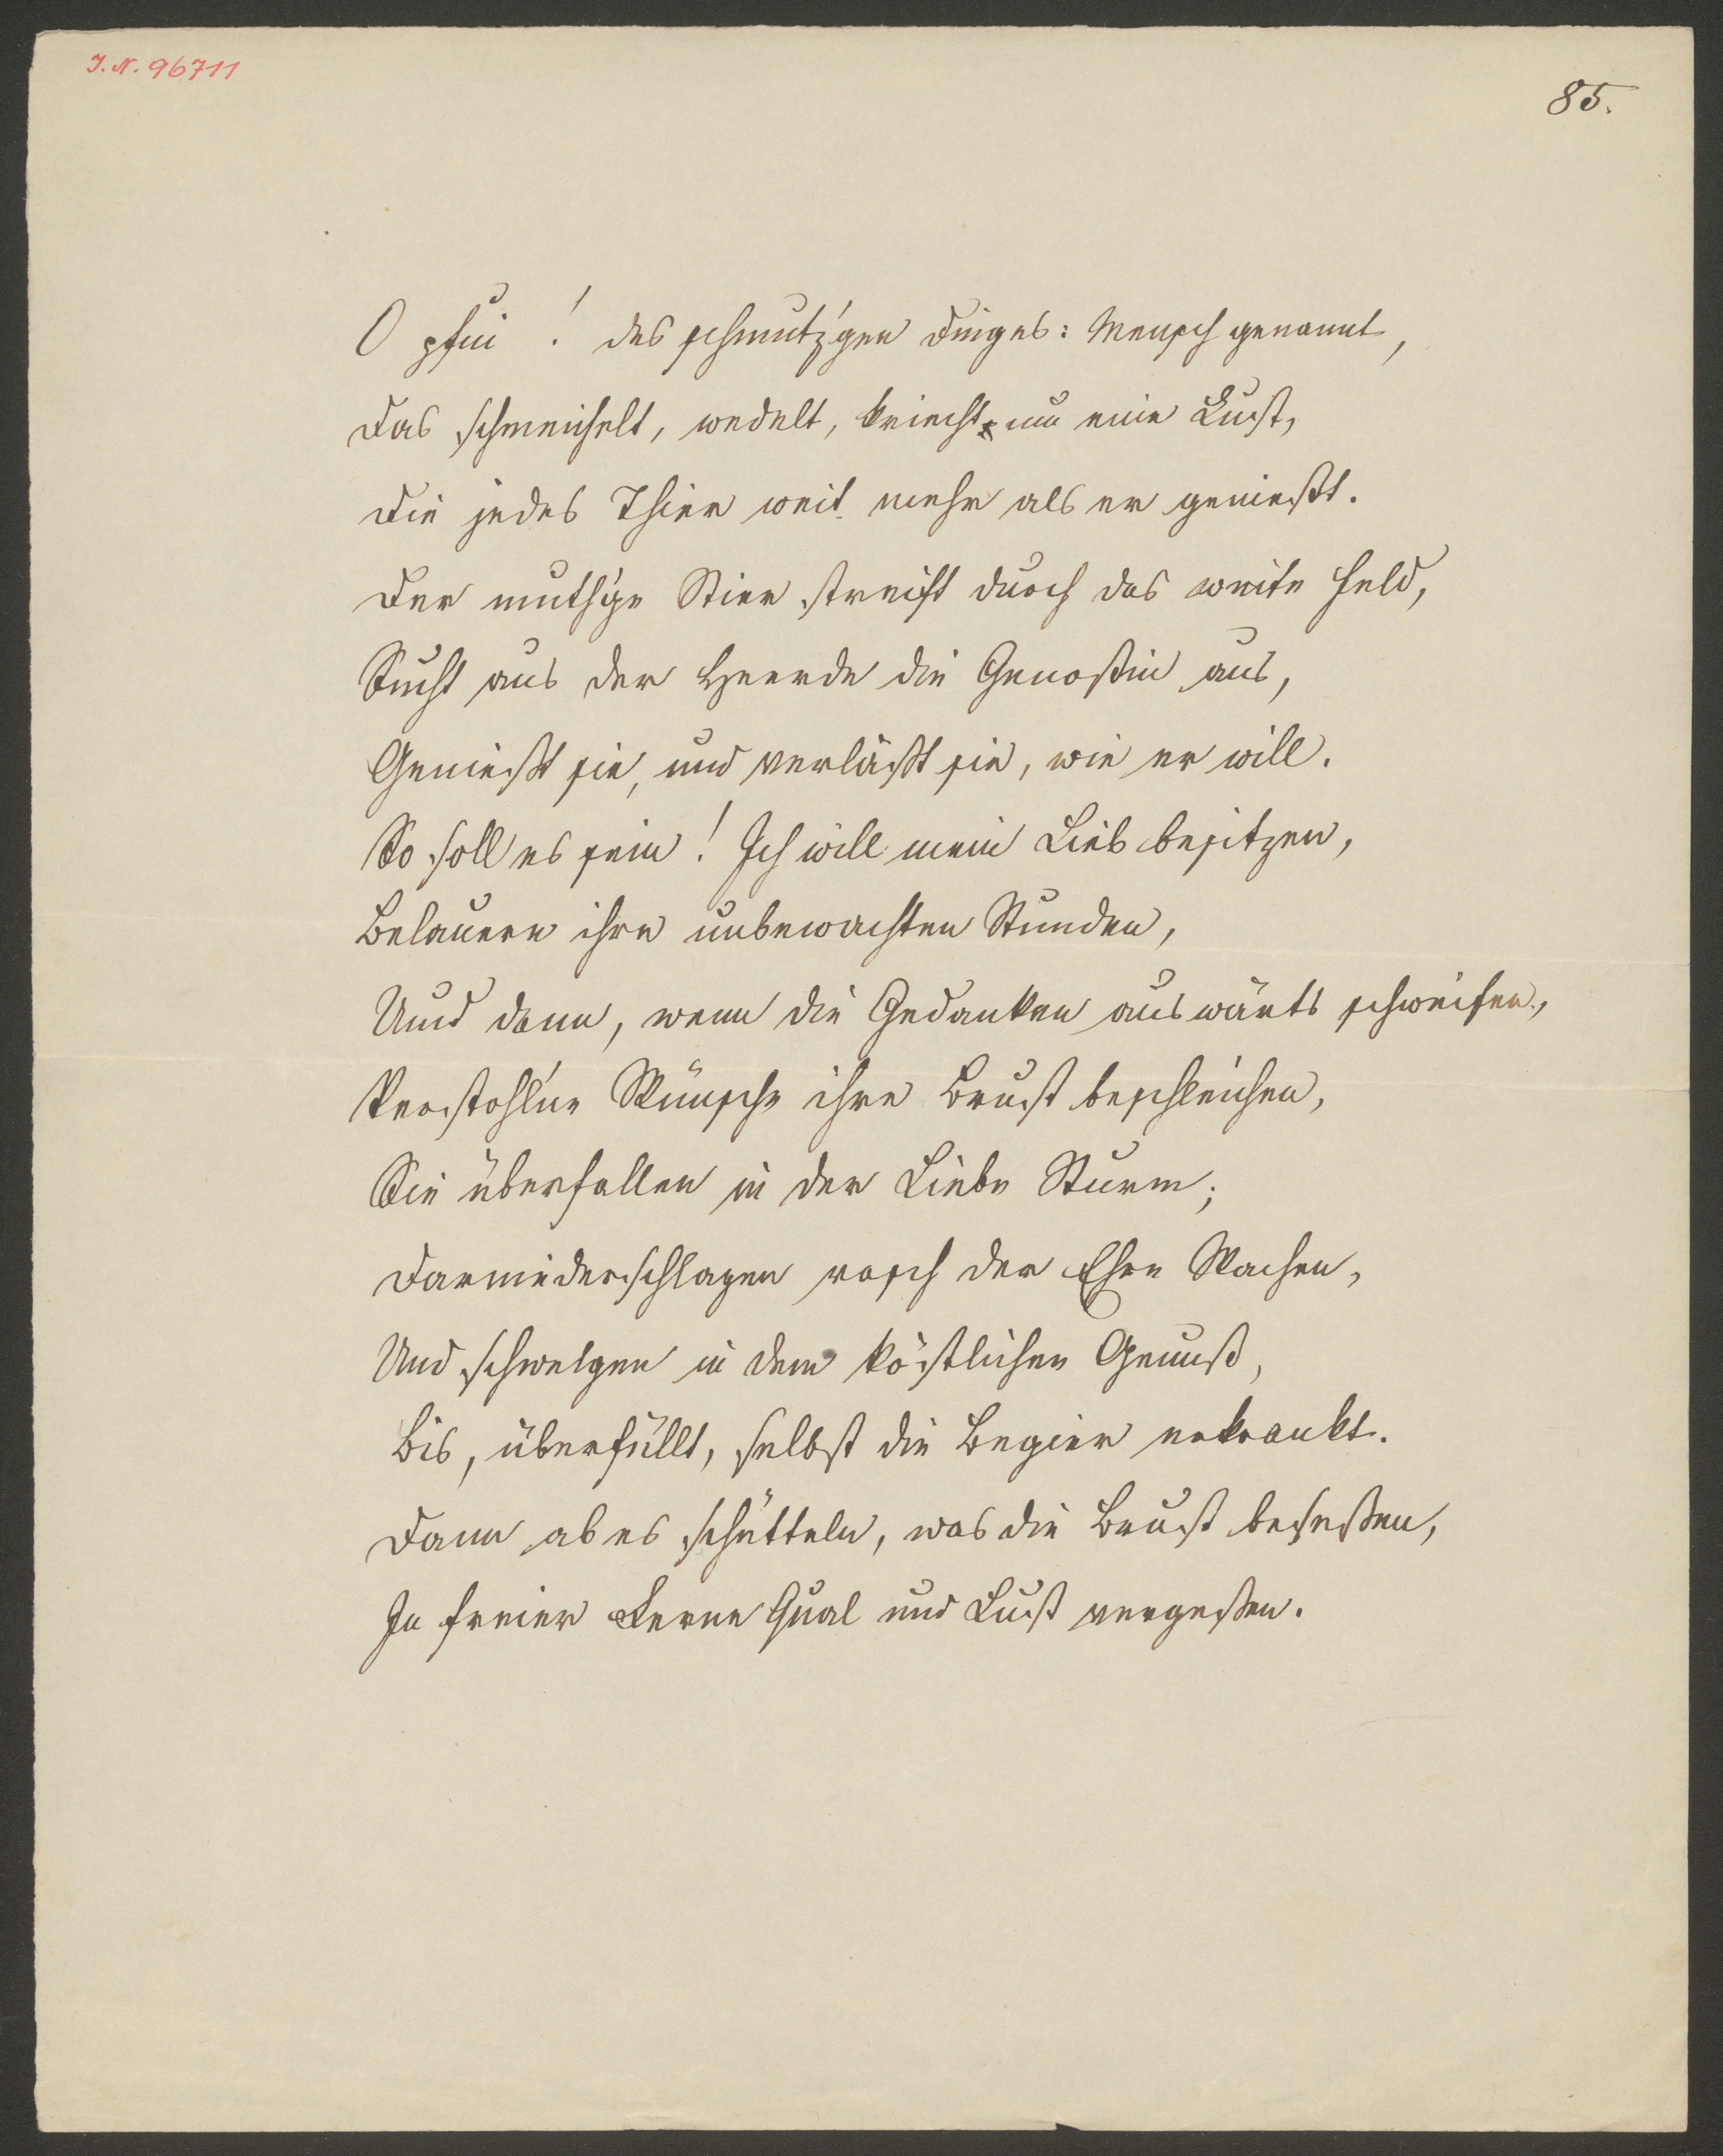 J. N. 96711
85.
O pfui ! des schmutz'gen Dinges: Mensch genannt,
Das schmeichelt, wedelt, kriecht um eine Lust,
Die jedes Thier weit mehr als er genießt.
Der muth'ge Stier streift durch das weite Feld,
Sucht aus der Heerde die Genoßin aus,
Genießt sie, und verläßt sie, wie er will.
So soll es sein! Ich will mein Lieb besitzen,
Belauern ihre unbewachten Stunden,
Und dann, wenn die Gedanken auswärts schweifen,
Verstohl'ne Wünsche ihre Brust beschleichen,
Sie überfallen in der Liebe Sturm;
Darniederschlagen rasch der Ehre Wachen,
Und schwelgen in dem köstlichen Genuß,
Bis, überfüllt, selbst die Begier erkrankt.
Dann ab es schütteln, was die Brust beseßen,
In freier Ferne Qual und Lust vergeßen.